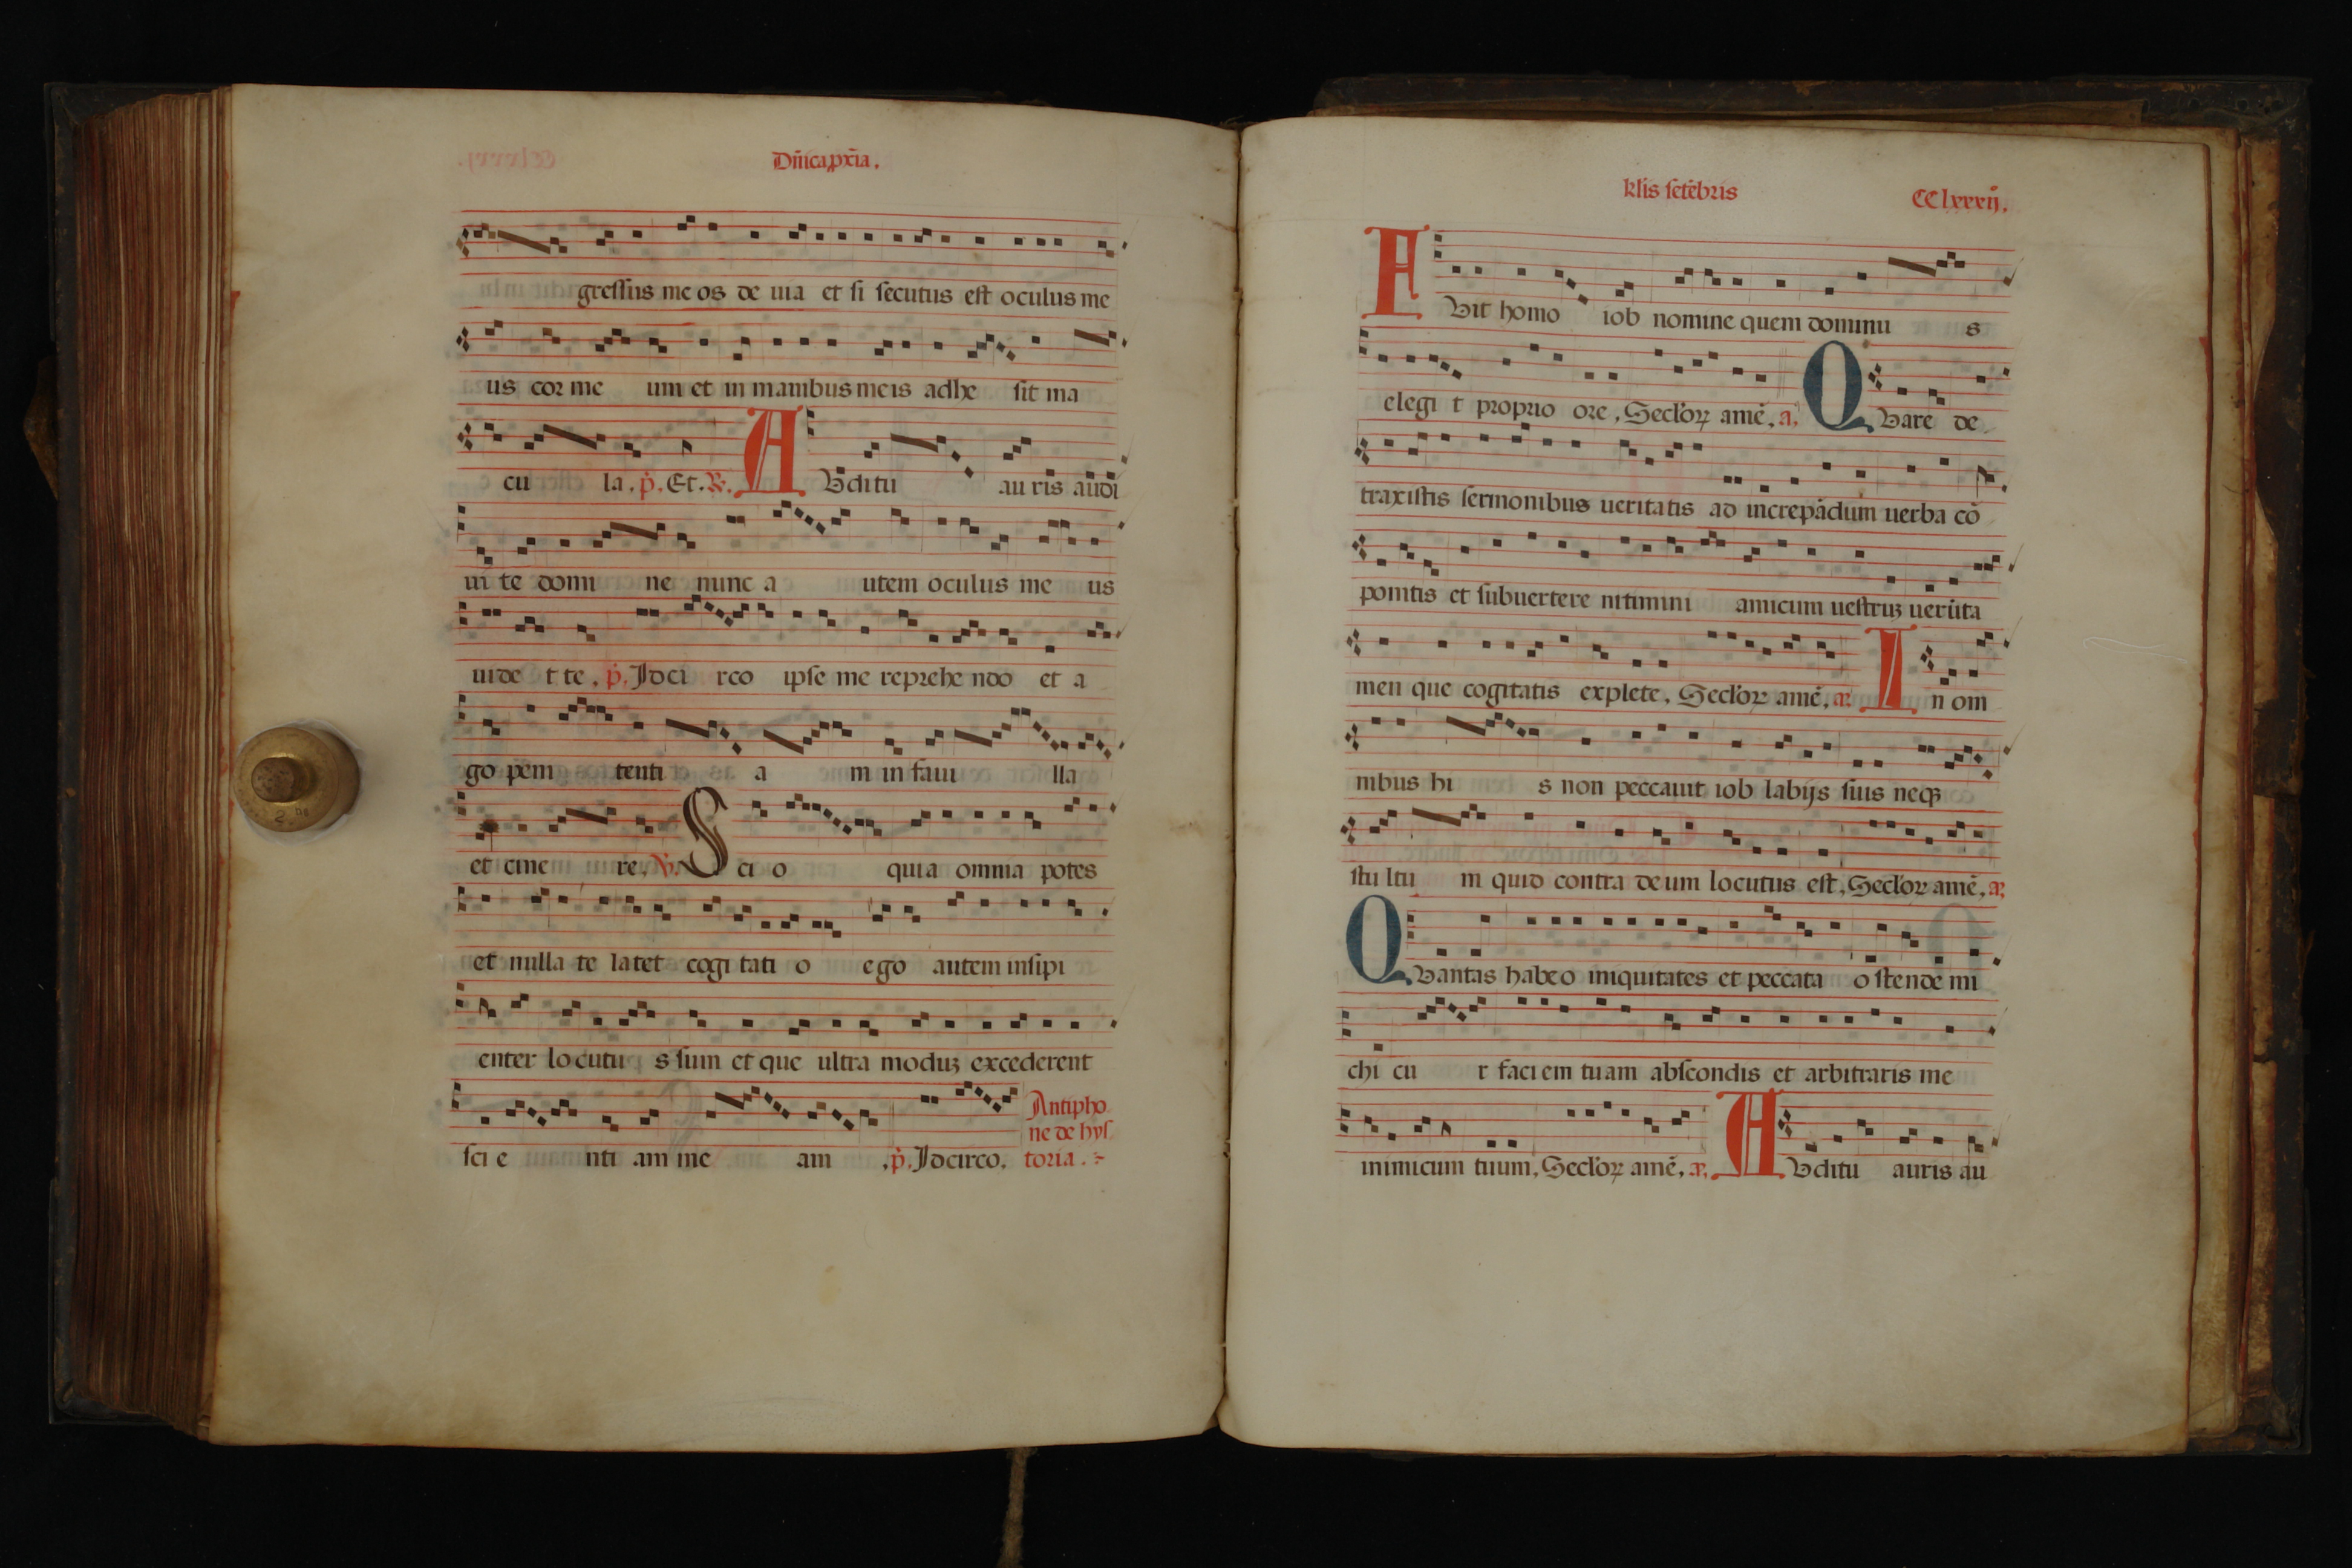 Dñica ꝓxīa.
gressus me os de uia et si secutus est oculus me
us cor me um et in manibus meis adhe sit ma
cu la. p̄. Et. ℟. A Uditu au ris audi
ui te domi ne nunc a utem oculus me us
uide t te. p̄. Idci rco ipse me reprehe ndo et a
go peni tenti a m in faui lla
et cine re. ℣. S ci o quia omnia potes
et nulla te latet cogi tati o ego autem insipi
enter lo cutu s sum et que ultra moduꝫ excederent
sci e nti am me am . p̄. Idcirco.
Antipho
ne de hys
toria.
klis setēbris CClxxxij.
F Uit homo iob nomine quem dominu s
elegi t proprio ore. Seclōꝝ amē. a. Q Uare de
traxistis sermonibus ueritatis ad increpādum uerba cō
ponitis et subuertere nitimini amicum uestruꝫ uerūta
men que cogitatis explete. Seclōꝝ amē. a. I n om
nibus hi s non peccauit iob labijs suis neqꝫ
stu ltu m quid contra deum locutus est. Seclōꝝ amē. a.
Q Uantas habeo iniquitates et peccata o stende mi
chi cu r faciem tuam abscondis et arbitraris me
inimicum tuum. Seclōꝝ amē. a. A Uditu auris au